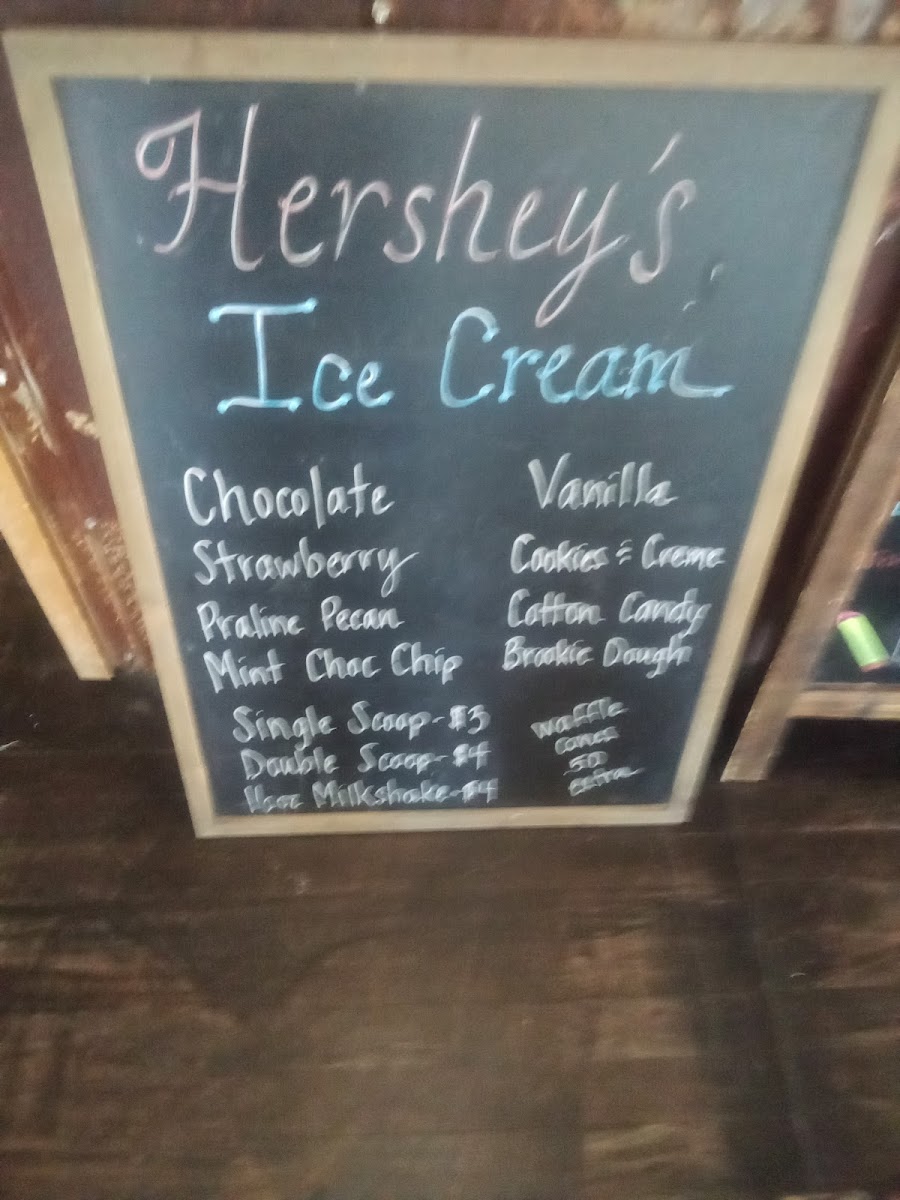 Hershey's
Ice Cream
Chocolate
Vanilla
Strawberry
Cookies & Creme
Praline Pecan
Cotton Candy
Mint Choc Chip
Brookie Dough
Single Scoop-$3
Double Scoop-$4
Milkshake-$4
waffle
cones
50
extra